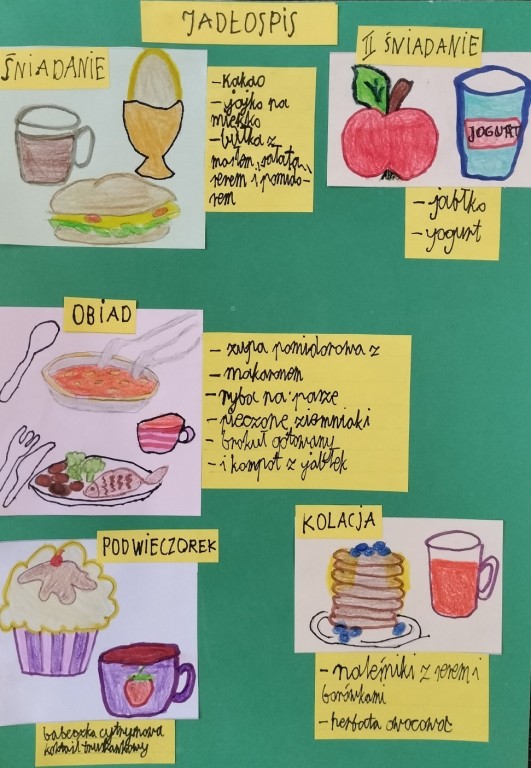 JADŁOSPIS
ŚNIADANIE
- kakao
- jajko na
miękko
- bułka z
masłem, sałatą,
serem i pomido-
rem
II ŚNIADANIE
JOGURT
- jabłko
- yogurt
OBIAD
- zupa pomidorowa z
- makaronem
- ryba na parze
- pieczone ziemniaki
- brokuł gotowany
- i kompot z jabłek
PODWIECZOREK
babeczka cytrynowa
koktail truskawkowy
KOLACJA
- naleśniki z serem i
borówkami
- herbata owocowa